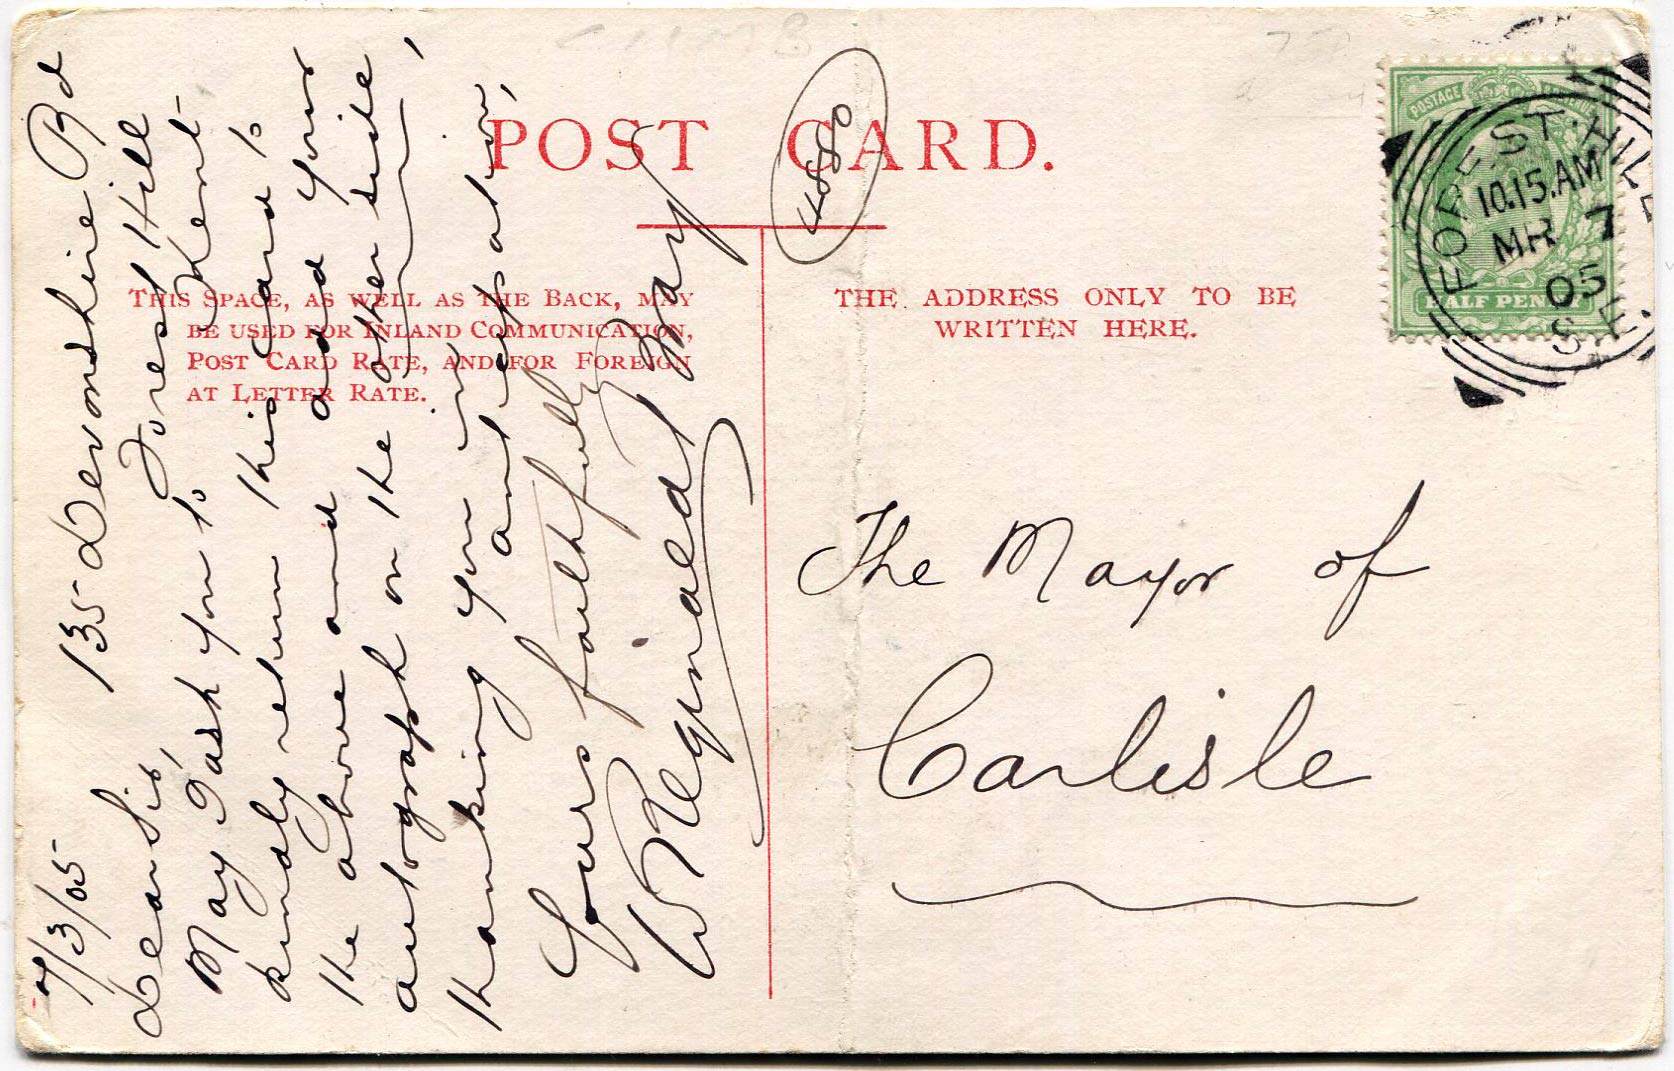 POST CARD.
44880
THIS SPACE, AS WELL AS THE BACK, MAY
BE USED FOR INLAND COMMUNICATION,
POST CARD RATE, AND FOR FOREIGN
AT LETTER RATE.
THE ADDRESS ONLY TO BE
WRITTEN HERE.
POSTAGE REVENUE
HALF PENNY
FOREST HILL
10.15.AM
MR 7
05
S.E.
7/3/05 135 Devonshire Rd
Forest Hill
Kent
Dear Sir,
May I ask you to
kindly return this card to
the above and add your
autograph on the other side,
thanking you in
anticipation,
Yours faithfully
W Reginald Bray
The Mayor of
Carlisle